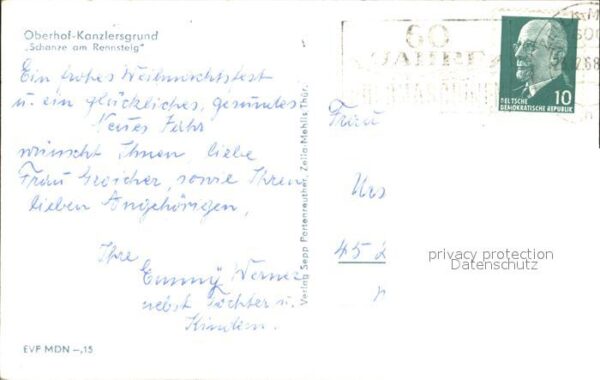 Oberhof-Kanzlersgrund
„Schanze am Rennsteig"
Ein frohes Weihnachtsfest
u. ein glückliches, gesundes
Neues Jahr
wünscht Ihnen, liebe
Frau sowie Ihren
lieben Angehörigen,
Ihre
Emmy Werner
nebst Töchter u.
Kindern.
EVP MDN -,15
Verlag Sepp Partenreuther, Zella-Mehlis Thür.
60
JAHRE
10
DEUTSCHE
DEMOKRATISCHE REPUBLIK
Frau
Urs
452
privacy protection
Datenschutz